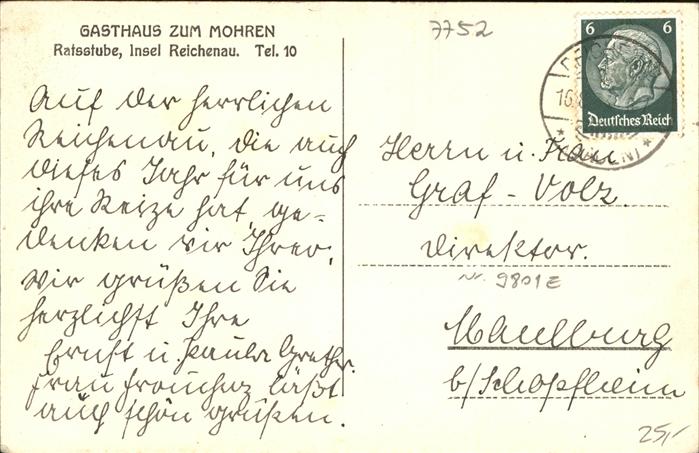 GASTHAUS ZUM MOHREN
Ratsstube, Insel Reichenau. Tel. 10
Auf der herrlichen
Reichenau, die auch
dieses Jahr für uns
ihre Reize hat, ge=
denken wir Ihrer,
wir grüßen Sie
herzlichst Ihre
Ernst u. Paula Grether.
Frau läßt
auch schön grüßen.
7752
6 6
Deutsches Reich
(BADEN)
Herrn u. Frau
Graf - Volz.
Direktor.
Nr. 9801E
Maulburg
b/Schopfheim
25,-